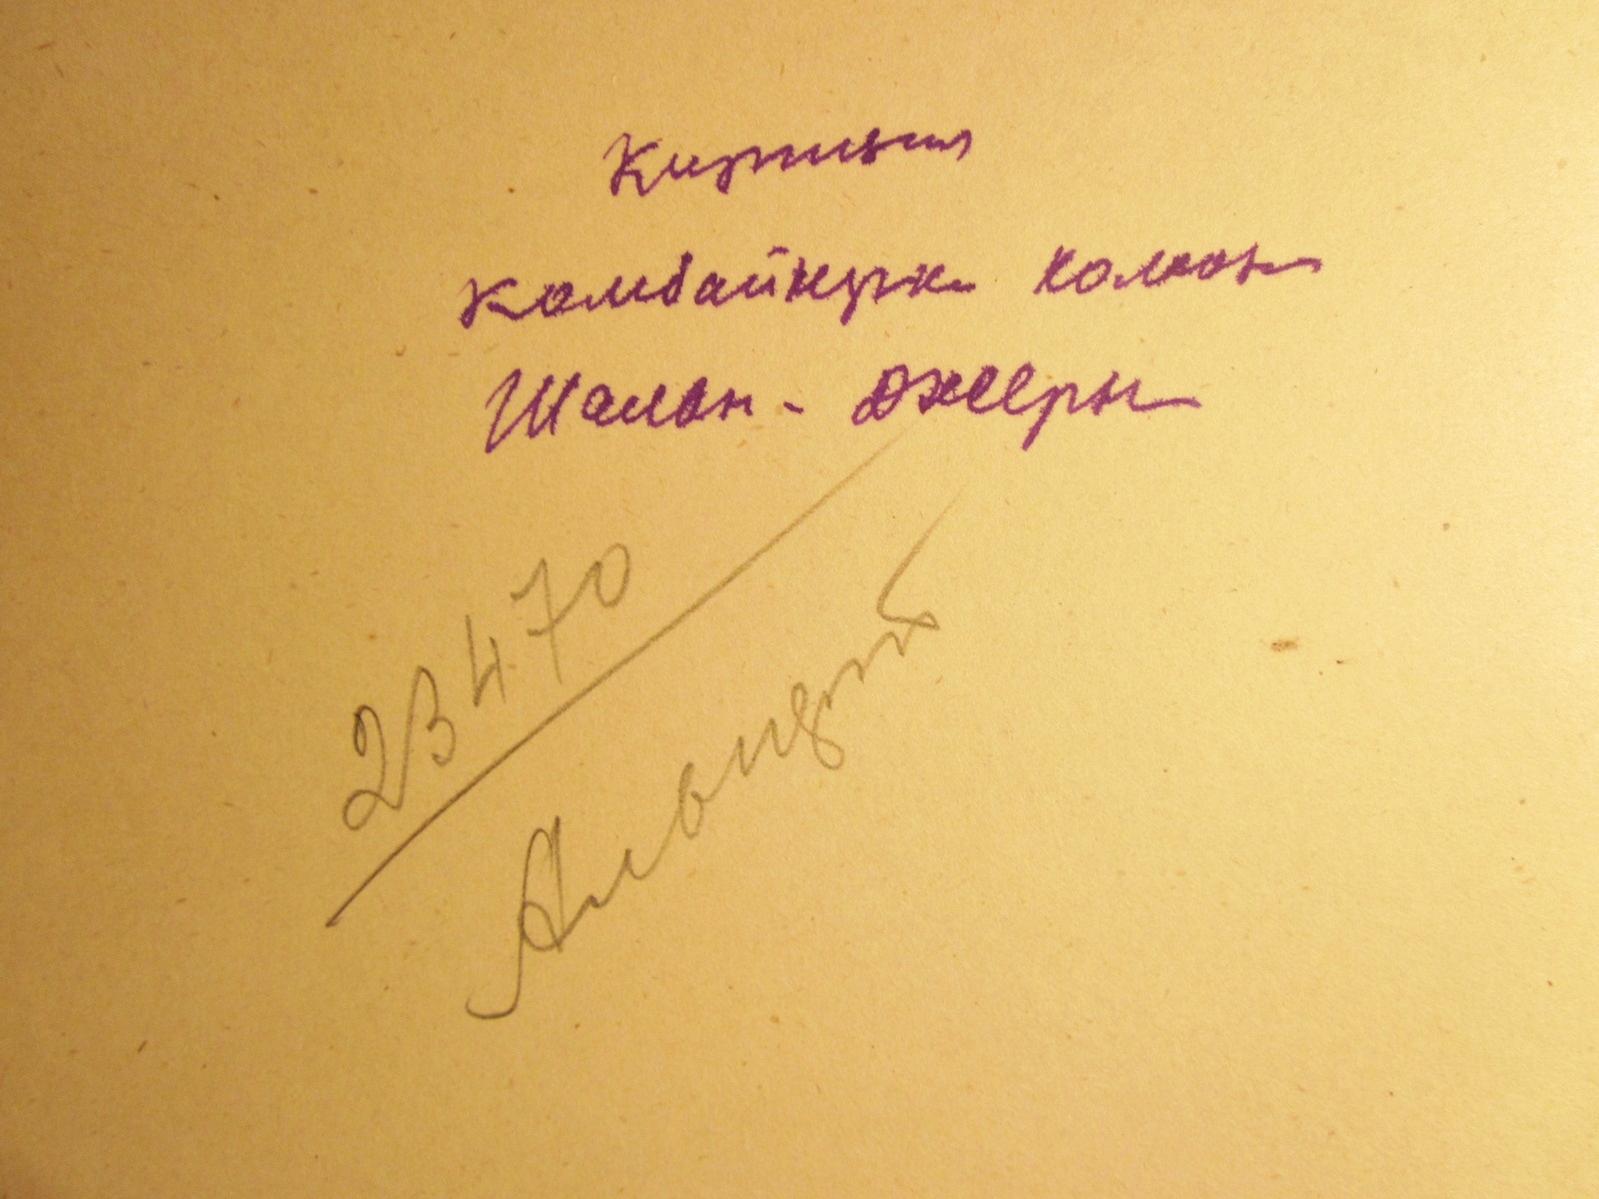 Киргизия
Комбайнерка колхоза
Шалван-Джеры
23470
Альперт